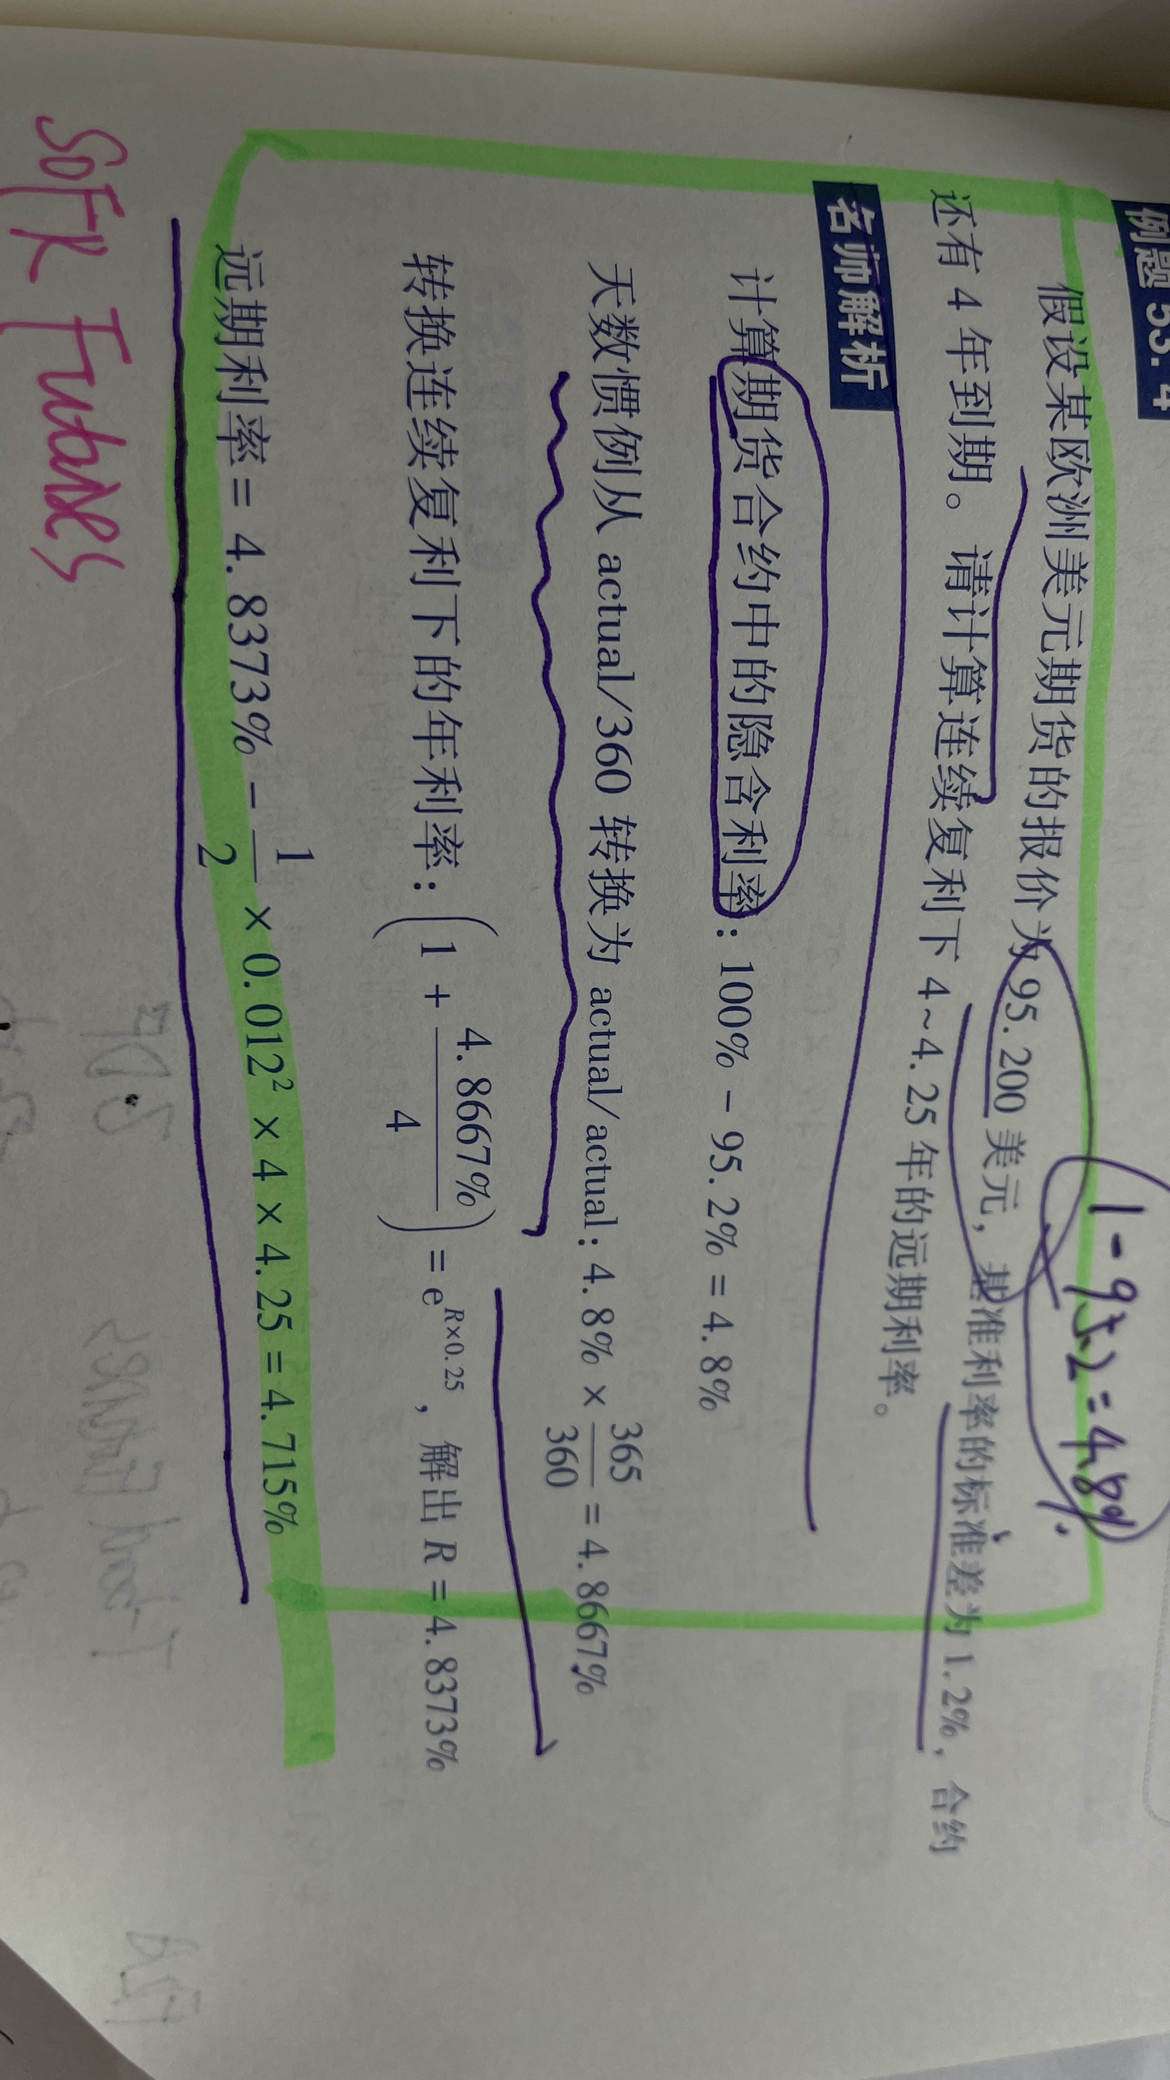 例题 53. 4
1-95.2=4.8%
假设某欧洲美元期货的报价为 95. 200 美元，基准利率的标准差为 1. 2%，合约
还有 4 年到期。请计算连续复利下 4~4. 25 年的远期利率。
名师解析
计算期货合约中的隐含利率：100% − 95. 2% = 4. 8%
天数惯例从 actual/360 转换为 actual/actual：4. 8% × 365/360 = 4. 8667%
转换连续复利下的年利率：(1 + 4. 8667%/4) = e^{R×0.25}，解出 R = 4. 8373%
远期利率 = 4. 8373% − 1/2 × 0. 012² × 4 × 4. 25 = 4. 715%
SOFR Futures